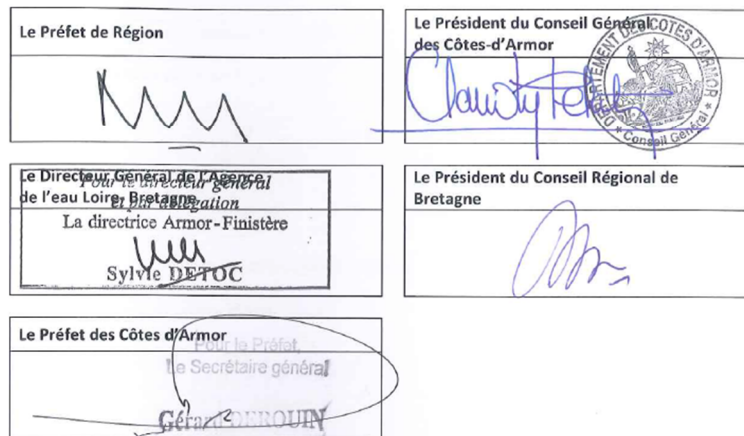 Le Préfet de Région
Le Président du Conseil Général
des Côtes-d'Armor
DEPARTEMENT DES COTES D'ARMOR
* Conseil Général *
Le Directeur Général de l'Agence
de l'eau Loire Bretagne
Pour le directeur général
et par délégation
La directrice Armor-Finistère
Sylvie DETOC
Le Président du Conseil Régional de
Bretagne
Le Préfet des Côtes d'Armor
Pour le Préfet,
Le Secrétaire général
Gérard DEROUIN